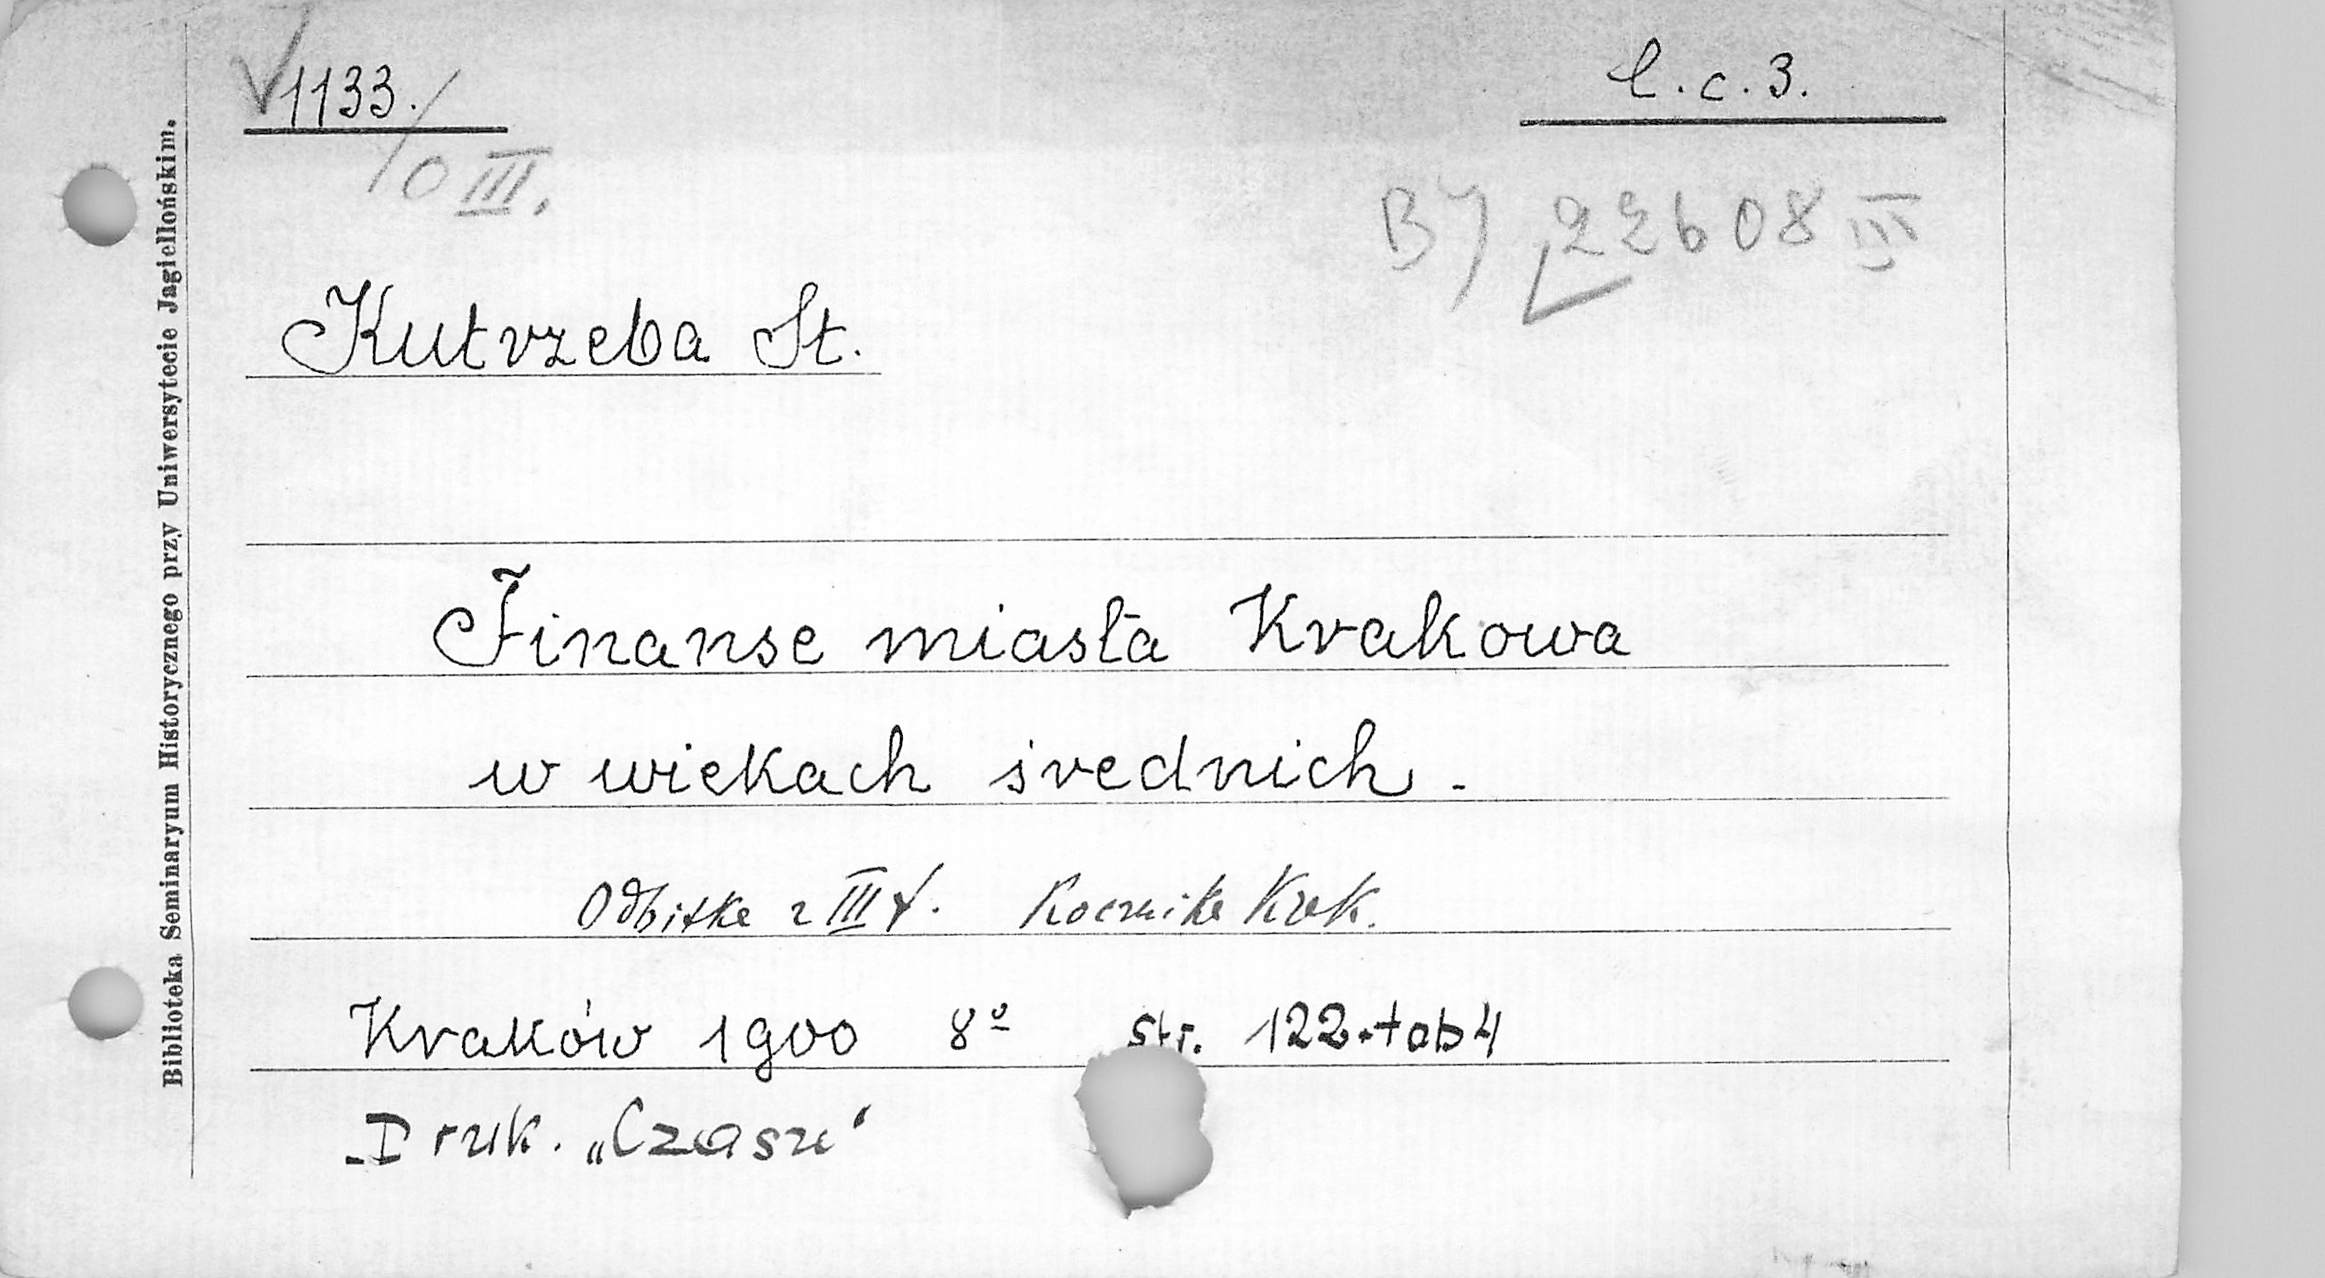 1133. l.c.3.
O III.
BJ 22608 III
Kutrzeba St.
Finanse miasta Krakowa
w wiekach średnich.
Odbitka z III t. Rocznika Krak.
Kraków 1900 8º str. 122 + tab 4
Druk. „Czasu"
Biblioteka Seminaryum Historycznego przy Uniwersytecie Jagiellońskim.